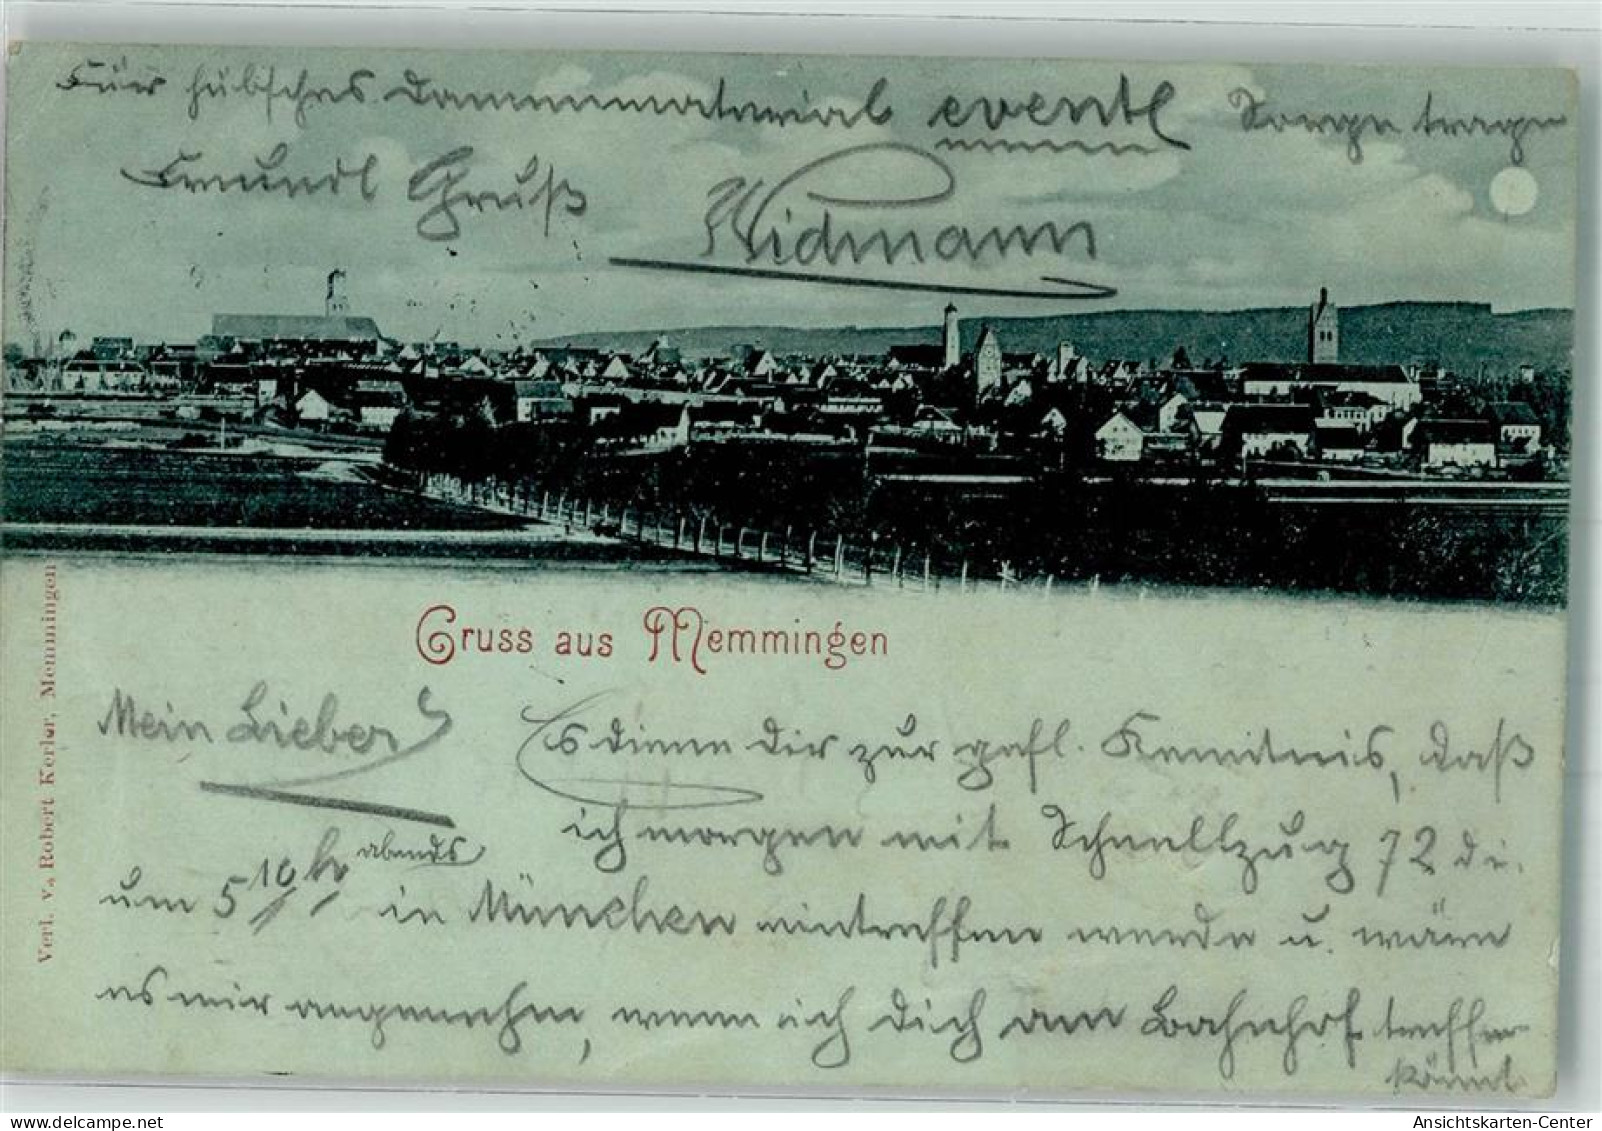 Für hübsches Damenmaterial eventl Sorge tragen
Freundl Gruß Widmann
Gruss aus Memmingen
Verl. v. Robert Kerler, Memmingen
Mein Lieber Es diene Dir zur gefl. Kenntnis, daß
ich morgen mit Schnellzug 72 d. i.
um 5 10 h abends in München eintreffen werde u. wäre
es mir angenehm, wenn ich dich am Bahnhof treffen
könnte
Ansichtskarten-Center